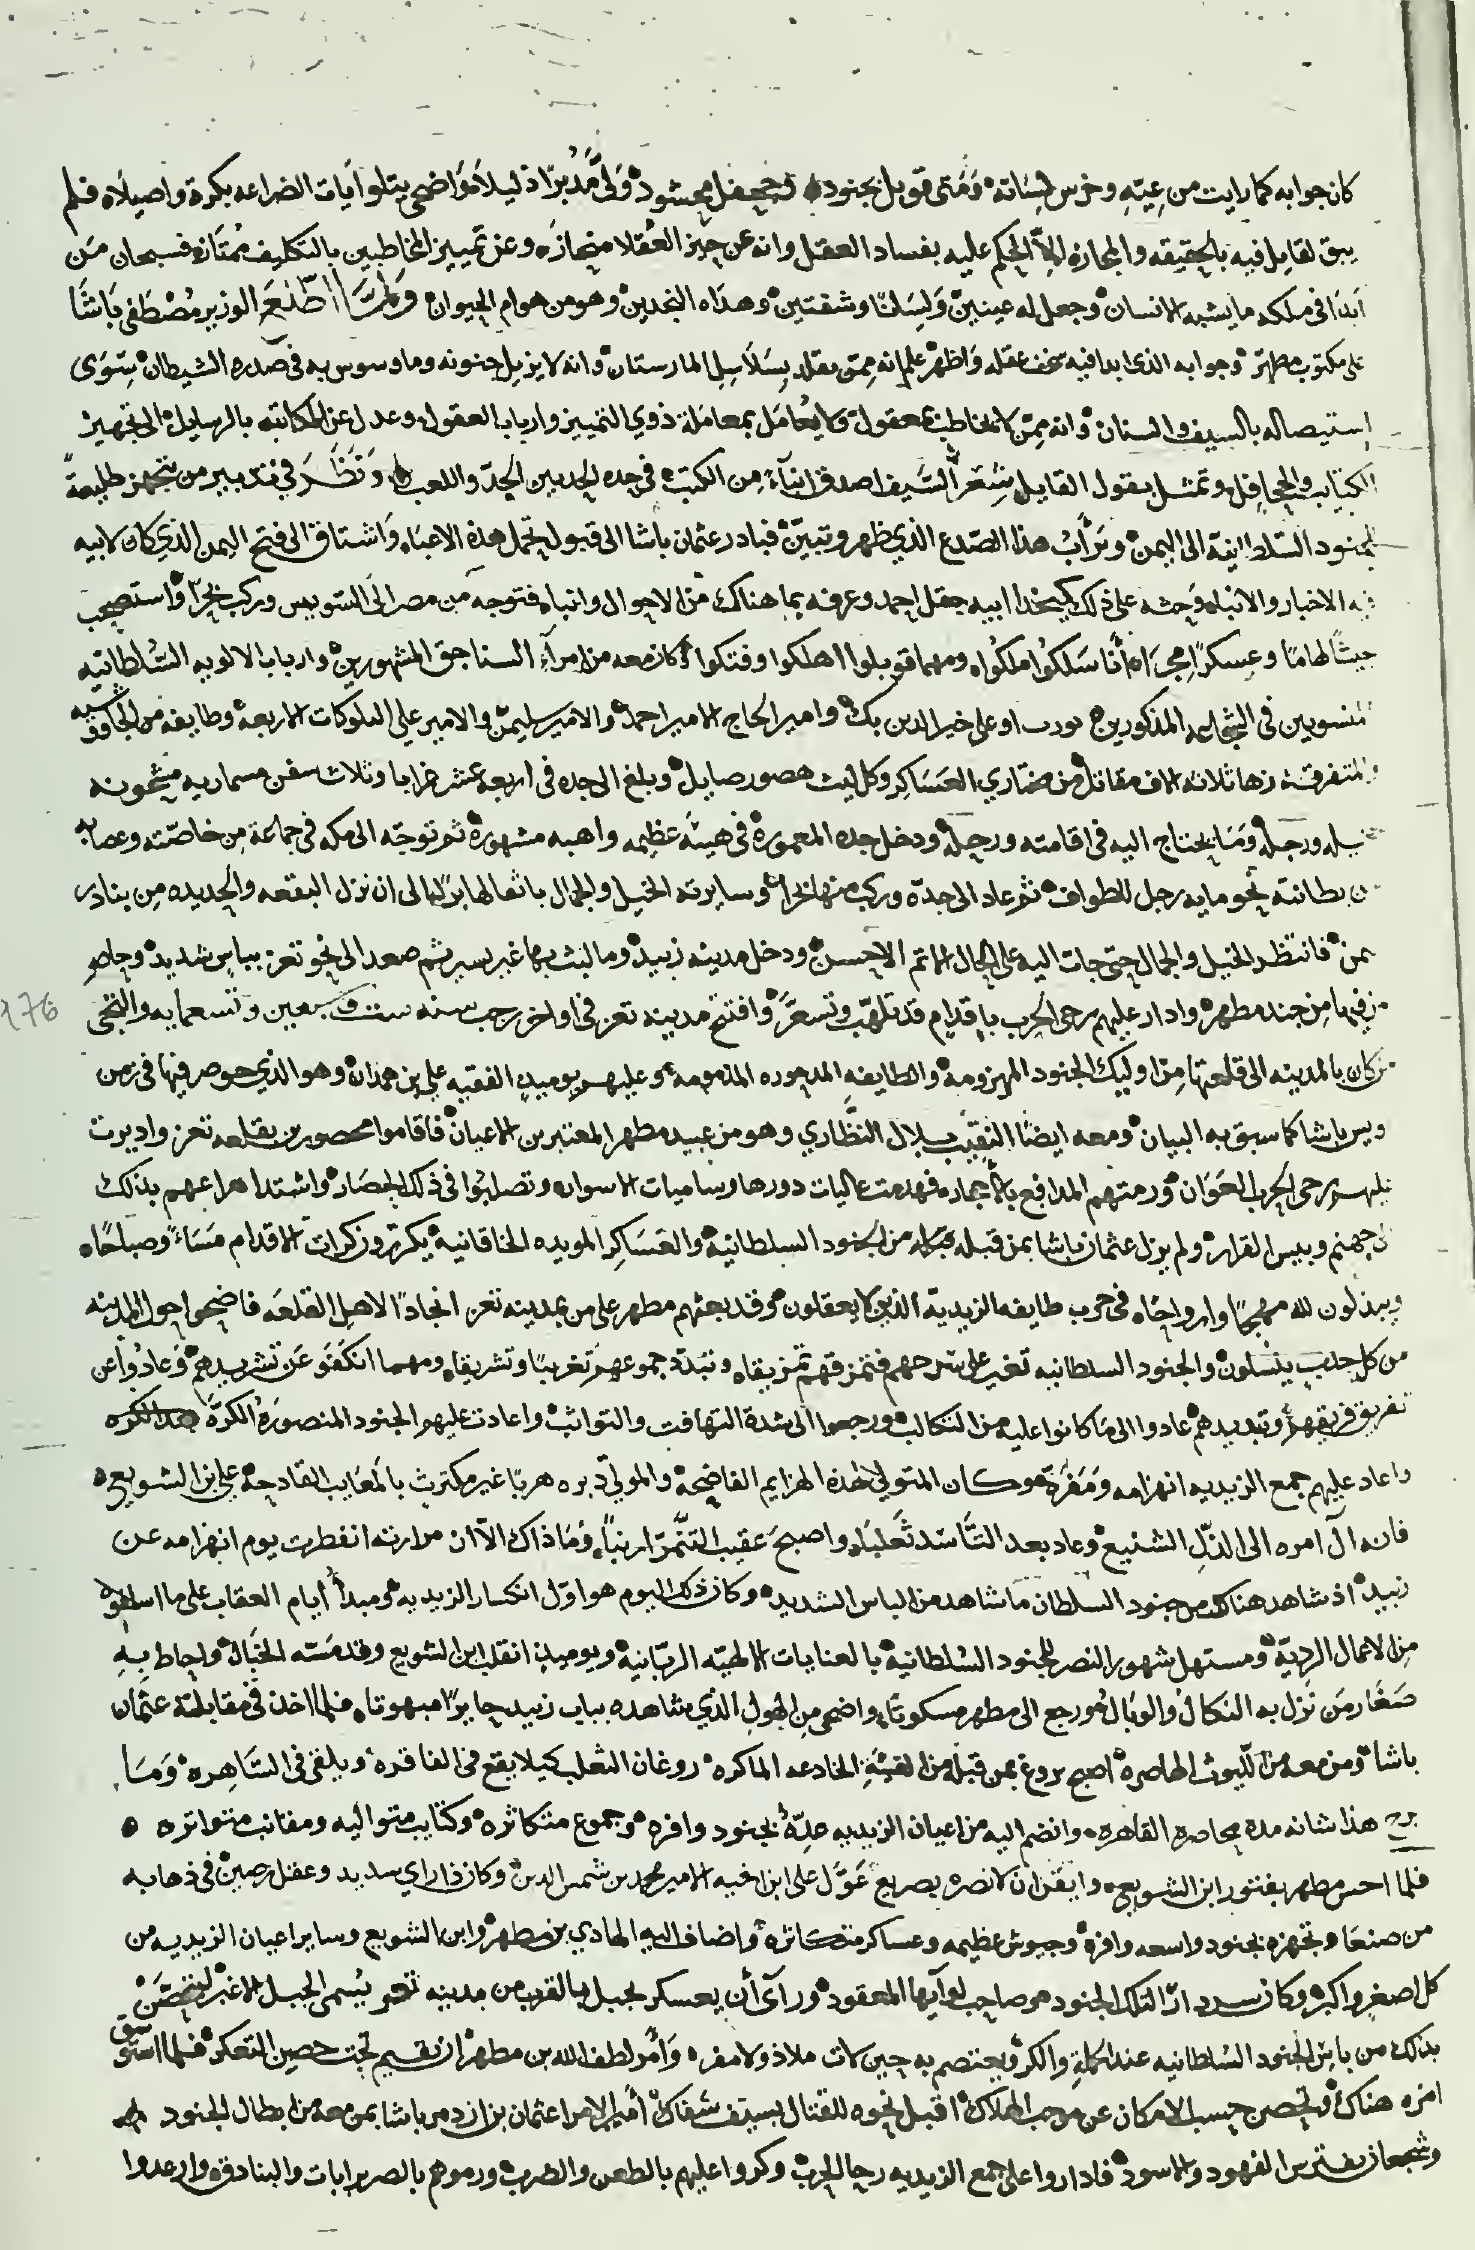 كان جوابه كما رايت من عِيّهِ وخرس لِسَانه ومَتى قوبل بجنود وجحفل محشود وَلَّى مُدْبِرًا ذليلا واَضحى يتلو اَيات الضراعه بكرة واصيلاه فلم
يبق لقايل فيه بالحقيقه والمجازه اِلاّ الحكم عليه بفساد العقل وانه عن حيز العُقلا منحازه وعن تمييز المخاطبين بالتكليف ممتازه فسبحان مَن
اَبدَا في ملكه ما يشبه الانسان وجعل له عينين وَلِسَانًا وشفتين وهداه النجدين وهو من هوام الحيوان وَلَمَّا اطّلَعَ الوزير مُصْطَفى بَاشَا
على مكتوب مطهر وجوابه الذي ابدا فيه سخف عقله وَاظهر علم انه ممن يقلد بِسَلَاسِل المارستان وانه لا يزيل جنونه وما وسوس به في صدره الشيطان سِوَى
اِستيصاله بالسيف والسنان وانه مِمّن لا يخاطب بمعقول ولا يُعامَل بمعاملة ذوي التمييز وارباب العقول وعدل عن المكاتبه بالرسايل الى تجهيز
الكتايب والجحافل وتمثل بقول القايل شِعْر السَّيف اصدق اَنبآءً مِن الكتب في حده الحد بين الجدّ واللعب وَنَظَرَ في تدبير من يتجهز طليعةً
للجنود السّلطانية الى اليمن ويَرْأَبُ هذا الصّدع الذي ظهر وتبيّن فبادر عثمان باشا الى قبول تحمل هذه الاعبَاه وَاشتاق الى فتح اليمن الذي كان لابيه
فيه الاخبار والانباه وَحثه على ذلك كيخدا ابيه جعل احمد وعرفه بما هناك من الاحوال وانباه فتوجه من مصر الَى السّويس وركب بحرًا واستصحب
جيشًا لهامًا وعسكرًا مجرًا انّا سَلكُوا مَلكُواه ومهما قوبلوا اهلكوا وفتكوا وكان معه من امرآءِ السناجق المشهورين وارباب الالويه السُّلطانيّه
المنسوبين في الشجاعه المذكورين علي خير الدين بك وامير الحاج الامير احمد والامير سليمن والامير علي البلوكات الاربعه وطايفه من الجاوشيه
والمتفرقه زها ثلاثه الاف مقاتل من ضاري العَسَاكِر وكل ليث هصور صايل وبلغ الى جده في اربعة عشر غرابا وثلاث سفن مسماريه مشحونه
بخيله ورجله وَمَا يحتاج اليه في اقامته ورحيله ودخل جده المعموره في هيئه عظيمه واهبه مشهوره ثم توجّه الى مكه في جماعة مِن خاصّته وعصابه
من بطانته نحو مايه رجل للطواف ثم عاد الى جدّه وركب منها بحرا وسايرته الخيل والجمال باثقالها برًّا الى ان نزل البقعه والحديده مِن بنادر
يمن فانتظر الخيل والجمال حتى جات اليه على الحال الاتم الاحسن ودخل مدينه زبيد وما لبث بها غير يسير ثم صعد الى نحو تعز بباس شديد وحاصر
من فيها مِن جند مطهر وادار عليهم رحى الحرب باِقدام قد تلهّب وتسعَّر وافتتح مدينه تعز في اواخر رجب سنه ست وسبعين وتسعمايه والتجى
من كان بالمدينه الى قلعتها مِن اوليك الجنود المهزومة والطايفه المدحوره المذمومه وعليهم يوميذ الفقيه علي بن حمدان وهو الذي حوصر فيها في زمن
ويس باشا كما سبق به البيان ومعه ايضًا النقيب بلال النظّاري وهو من عبيد مطهر المعتبرين الاعيان فاقاموا محصورين بقلعه تعز واديرت
عليهم رحى الحرب العَوَان ورمتهم المدافع بالاحجار فهدمت عاليات دورها وساميات الاسواره وتصلبوا في ذلك الحصار واشتد اهراعهم بذلك
الى جهنم وبيس القرار ولم يزل عثمان باشا بمن قبله من الجنود السلطانية والعَسَاكِر المويده الخاقانيه يكررون كرات الاقدام مَسَاءً وصباحًاه
ويبذلون لله مهجًا وارواحًاه في حرب طايفه الزيديّه الذين لا يعقلون وقد بعثهم مطهر على من بمدينه تعز انجادًا لاهل القلعَه فاضحوا حول المدينه
من كل حدب ينسلون والجنود السلطانيه تغير على سرحهم فتمزقهم تمزيقاه وتبدّد جموعهم تغريبًا وتشريقاه ومهما انكفَوا عَن تشريدهم وعادُوا عن
تفريق فريقهم وتبديدهم عادوا الى مَا كانوا عليه من التكالب ورجعوا الى شدة التهافت والتواثب واعادت عليهم الجنود المنصورَة الكرّة
واعاد عليهم جمع الزيديه انهزامه وَمَفَرّه وكان المتولي لهذه الهزايم الفاضحة والمولّي دبره هربًا غير مكترث بالمعَايب القادحة علي بن الشويع
فانه آل امره الى الذّل الشنيع وعاد بعد التّأسّد ثَعلبًاه واصبحَ عقيب التنمّر ارنبًاه وَمَا ذاك الاّ ان مرارته انفطرت يوم انهزامه عن
زبيد اذ شاهد هناك من جنود السلطان ما شاهد من الباس الشديد وكان ذلك اليوم هو اوّل انكسار الزيديه ومبدأ اَيام العقاب على ما اسلفوه
مِن الاعمال الرديّة ومستهل شهور النصر للجنود السُلطانيه بالعنايات الالهيّه الربّانيه ويوميذ انقلب ابن الشويع وقد مَسّته الخبَال واحاط بِهِ
صَغَار مَن نَزل به النكال والوبَال ورجع الى مطهر مسكوتاه واضحى مِن الهول الذي شاهده بباب زبيد حايرًا مبهوتاه فلما اخذ في مقابلة عثمان
باشا ومن معه من الليوث الهاصره اصبح يروغ بمن قبله من الفئة الخادعه الماكره روغان الثعلب كيلا يقع في الفاقره ويلقى في السّاهره وَمَا
برح هذا شانه مدة محاصره القاهره وانضم اليه من اعيان الزيديه عِدّه بجنود وافره وجموع متكاثره وكتايب متواليه ومقانب متواتره
فلما احس مطهر بفتور ابن الشويع وايقن ان لا نصره بصريع عَوّل على ابن اخيه الامير محمد بن شمس الدين وكان ذا راي سديد وعقل رصين في ذهابه
من صنعا وتجهزه بجنود واسعه وافره وجيوش عظيمه وعساكر متكاثره واضاف اليه الهادي بن مطهر وابن الشويع وساير اعيان الزيديه من
كل اصغر واكبر وكان سردار تلك الجنود هو صاحب لوآيها المعقود ورآى أن يعسكر بجبل بالقرب من مدينه تعز يُسمى الجبل الاغبر ليتحصّن
بذلك من باس الجنود السُلطانيه عند الحملة والكر ويعتصم به حين لات ملاذ ولا مفر وَأَمر لطف الله بن مطهر ان يقيم تحت حصن التعكر فلما استوسق
امره هناك وتحصن حسب الامكان عن موجب الهلاك اقبل نحوه للقتال بسيف سفاك أمير الامرا عثمان بن ازدمر باشا بمن معه من ابطال الجنود
وشجعان يفترس الفهود والاسود فاداروا على جمع الزيديه رحا الحرب وكروا عليهم بالطعن والضرب ورموهم بالضربزانات والبنادقه وارعدوا
٩٧٦